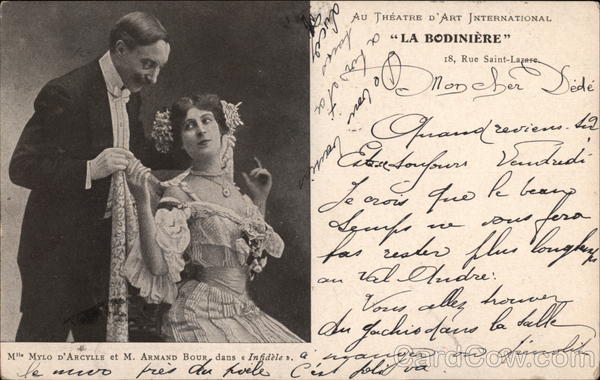 AU THÉATRE D'ART INTERNATIONAL
"LA BODINIÈRE"
18, Rue Saint-Lazare.
Mon cher Dédé
Quand reviens-tu
Est-ce toujours Vendredi
Je crois que le beau
temps ne vous fera
pas rester plus longtemps
au Val André.
Vous allez trouver
du gachis dans la salle
à manger
le mur près du poêle C'est joli va
Mlle MYLO D'ARCYLLE et M. ARMAND BOUR, dans « Infidèle ».
CardCow.com